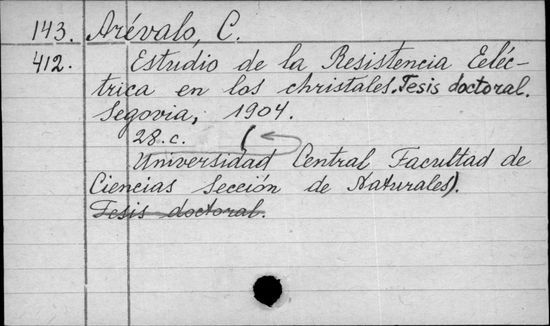 143. Arévalo, C.
412. Estudio de la Resistencia Eeléc-
trica en los christales. Tesis doctoral.
Segovia, 1904.
28. c. (
Universidad Central Facultad de
Ciencias Sección de Naturales).
Tesis doctoral.